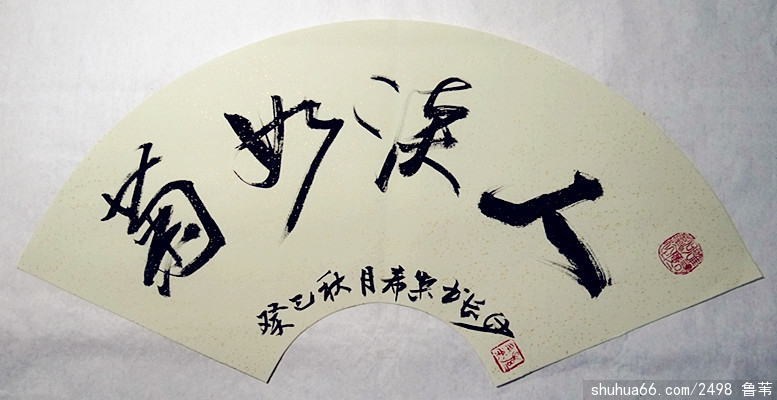 人淡如菊
癸巳秋月希
shuhua66.com/2498 鲁苇